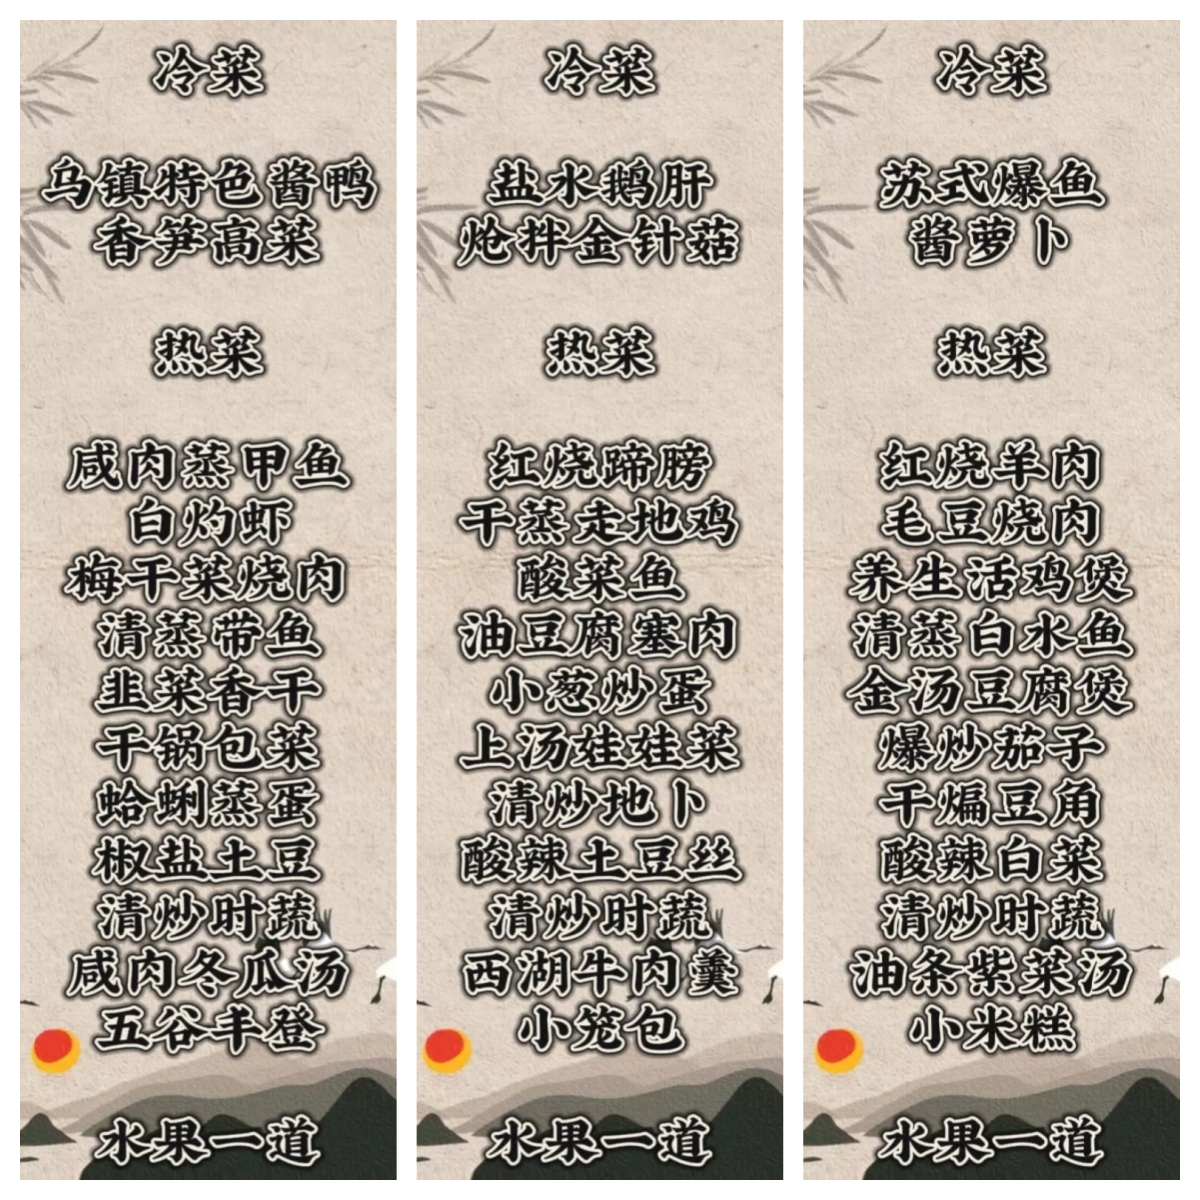 冷菜
乌镇特色酱鸭
香笋高菜
热菜
咸肉蒸甲鱼
白灼虾
梅干菜烧肉
清蒸带鱼
韭菜香干
干锅包菜
蛤蜊蒸蛋
椒盐土豆
清炒时蔬
咸肉冬瓜汤
五谷丰登
水果一道
冷菜
盐水鹅肝
炝拌金针菇
热菜
红烧蹄膀
干蒸走地鸡
酸菜鱼
油豆腐塞肉
小葱炒蛋
上汤娃娃菜
清炒地卜
酸辣土豆丝
清炒时蔬
西湖牛肉羹
小笼包
水果一道
冷菜
苏式爆鱼
酱萝卜
热菜
红烧羊肉
毛豆烧肉
养生活鸡煲
清蒸白水鱼
金汤豆腐煲
爆炒茄子
干煸豆角
酸辣白菜
清炒时蔬
油条紫菜汤
小米糕
水果一道